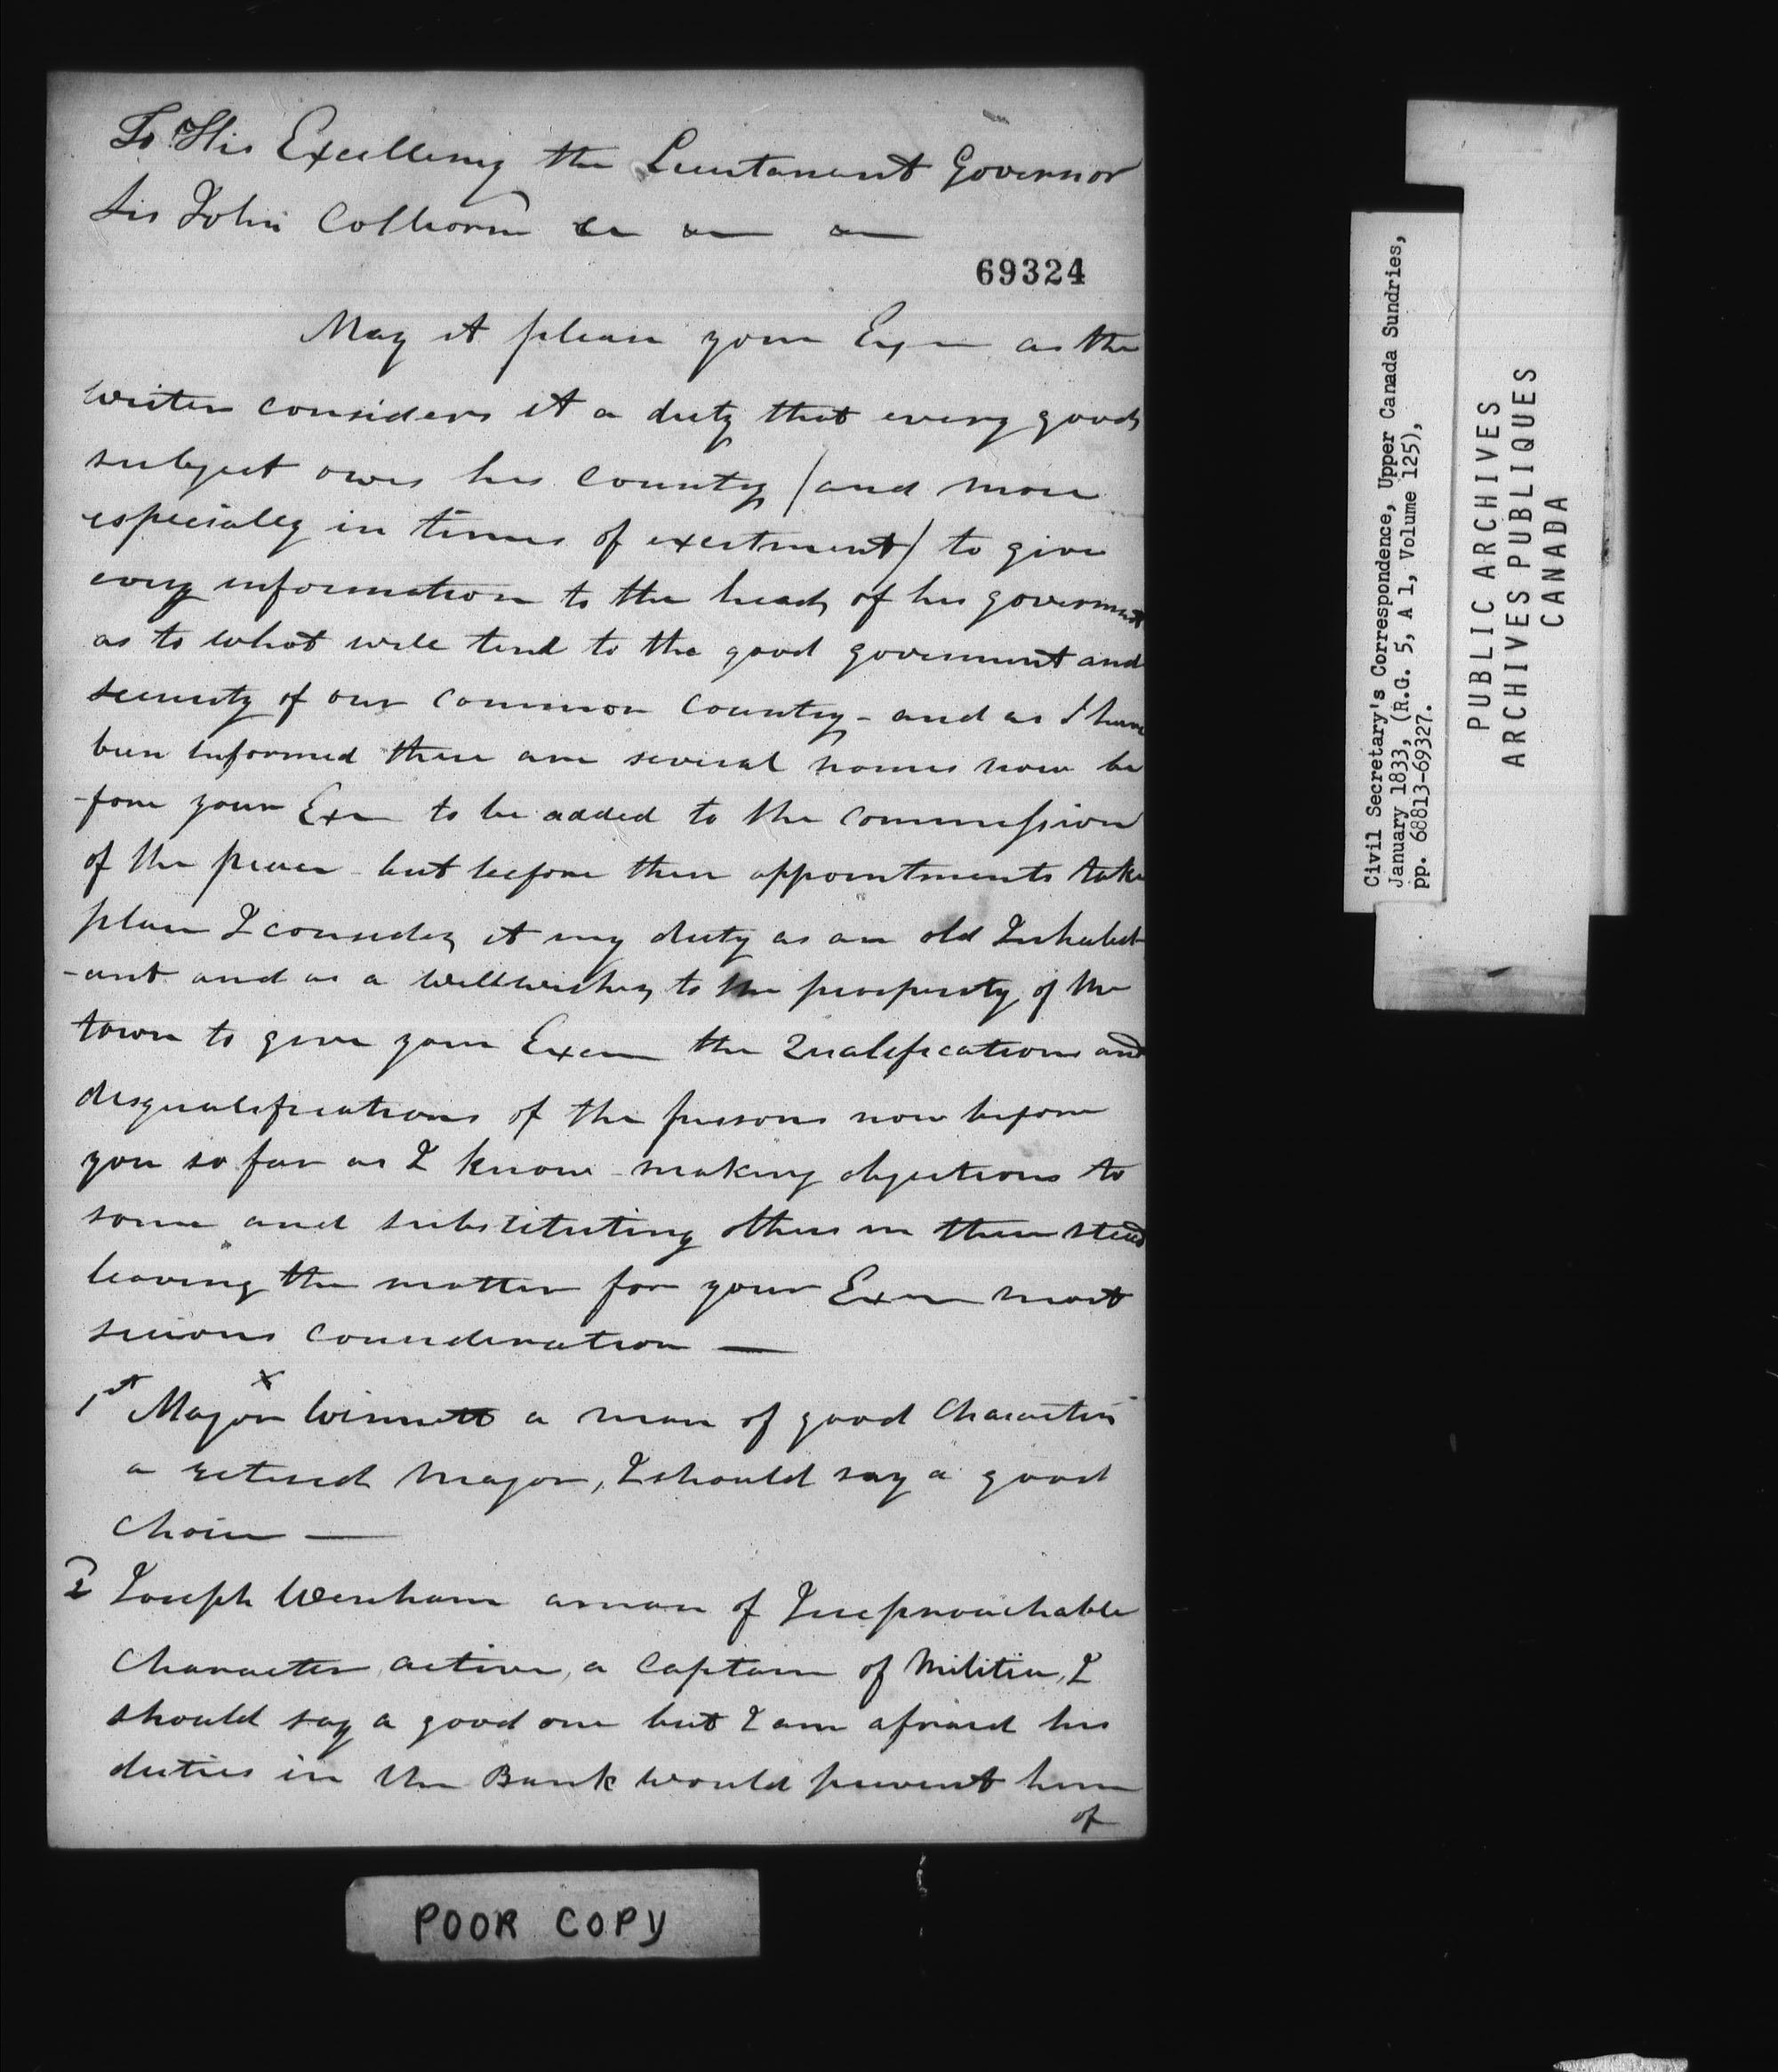 To His Excellency the Lieutanant Governor
Sir John Colborn &c &c &c
69324
May it please your Exc as the
writer considers it a duty that every good
subject owes his Country (and more
especially in times of exertment) to give
every information to the head of his government
as to what will tend to the good government and
security of our common Country - and as I have
been informed there are several names now be
-fore your Exc to be added to the Commission
of the peace but before these appointments take
place I consider it my duty as an old Inhabit
-ant and as a wellwisher to the prosperity of the
town to give your Excn the Qualifications and
disqualifications of the persons now before
you so far as I know making objections to
some and substituting others in their stead
leaving the matter for your Excn most
serious consideration —
1st Major Winnett x a man of good Character
a retired Major, I should say a good
Choice —
2 Joseph Wenham a man of Irreproachable
Character, active, a Captain of Militia, I
should say a good one but I am afraid his
duties in the Bank would prevent him
of
POOR COPY
Civil Secretary's Correspondence, Upper Canada Sundries,
January 1833, (R.G. 5, A 1, Volume 125),
pp. 68813-69327.
PUBLIC ARCHIVES
ARCHIVES PUBLIQUES
CANADA